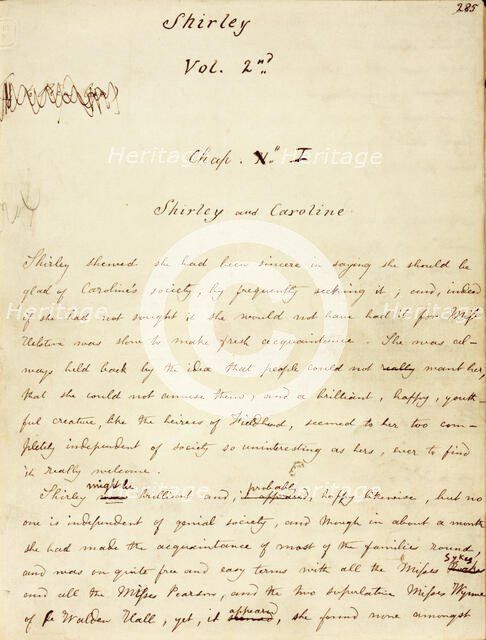 285
Shirley
Vol. 2nd
Chap. I
Shirley and Caroline
Shirley shewed she had been sincere in saying she should be
glad of Caroline's society, by frequently seeking it; and, indeed
if she had not sought it she would not have had it for Miss
Helstone was slow to make fresh acquaintance. She was al-
ways held back by the idea that people could not really want her,
that she could not amuse them; and a brilliant, happy, youth-
ful creature, like the heiress of Fieldhead, seemed to her too com-
pletely independent of society so uninteresting as hers, ever to find
it really welcome.
Shirley might be brilliant and, probably, happy likewise, but no
one is independent of genial society, and though in about a month
she had made the acquaintance of most of the families round
and was on quite free and easy terms with all the Misses Sykes,
and all the Misses Pearson, and the two superlative Misses Wynne
of De Walden Hall, yet, it appeared, she found none amongst
Heritage Heritage Heritage